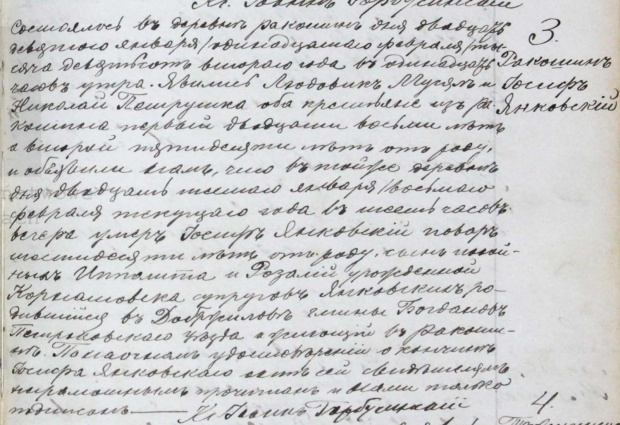 Состоялось въ деревнѣ Ракошинъ дня двадцать
девятаго Января /одинадцатаго Февраля/ ты-
сяча девятьсотъ втораго года въ одинадцать
часовъ утра. Явились Людовикъ и
Николай Петрушка оба крестьяне изъ Ра-
кошина первый двадцати восьми лѣтъ
а второй пятидесяти лѣтъ отъ роду,
и объявили намъ, что въ тойже деревнѣ
дня двадцать шестаго Января /восьмаго
Февраля текущаго года въ шесть часовъ
вечера умеръ Іосифъ Янковскій поваръ
шестидесяти лѣтъ отъ роду, сынъ покой-
ныхъ Ипполита и Розаліи урожденной
супруговъ Янковскихъ ро-
дившійся въ гмины Богдановъ
Петроковскаго уѣзда а жившій въ Ракоши-
нѣ. По наочномъ удостовѣреніи о кончинѣ
Іосифа Янковскаго актъ сей свидѣтелямъ
неграмотнымъ прочитанъ и нами только
подписанъ Кс. Іоаннъ
3.
Ракошинъ
Іосифъ
Янковскій
4.